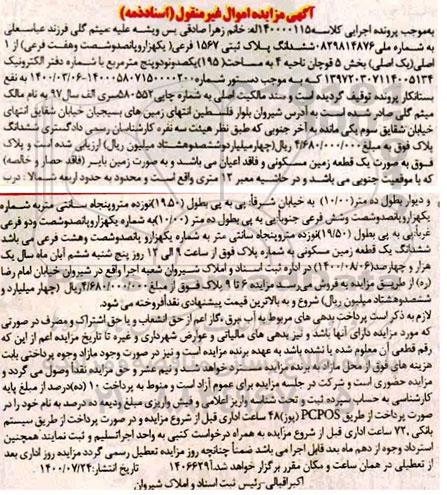 آگهی مزایده اموال غیر منقول (اسنادذمه)
بموجب پرونده اجرایی کلاسه ۱۴۰۰۰۰۱۱۵ له: خانم زهرا صادقی پس ویشه علیه: میثم گلی فرزند عباسعلی
به شماره ملی ۰۸۲۹۸۱۴۸۷۶ ششدانگ پلاک ثبتی ۱۵۶۷ فرعی( یکهزاروپانصدوشصت وهفت فرعی) از ۱
اصلی(یک اصلی) بخش ۵ قوچان ناحیه ۴ به مساحت( ۱۹۵)یکصدونودوپنج مترمربع با شماره دفتر الکترونیک
۱۳۹۷۲۰۳۰۷۱۱۴۰۰۵۱۳۴ که به موجب دستورشماره ۱۴۰۰۰۵۸۰۷۱۵۰۰۰۰۲۰۰-۱۴۰۰/۰۳/۰۶ به نفع
بستانکار پرونده توقیف گردیده است و سند مالکیت اصلی به شماره چاپی ۵۸۰۵۵۲سری الف سال۹۷ به نام مالک
میثم گلی صادر شده است به آدرس شیروان بلوار فلسطین انتهای زمین های بسیجیان خیابان شقایق انتهای
خیابان شقایق سوم یکی مانده به آخر جنوبی که طبق نظر هیئت سه نفره کارشناسان رسمی دادگستری ششدانگ
پلاک فوق به مبلغ ۴/۶۸۰/۰۰۰/۰۰۰ریال(چهارمیلیاردوششصدوهشتاد میلیون ریال) ارزیابی شده است و پلاک
فوق به صورت یک قطعه زمین مسکونی و فاقد اعیان می باشد و به صورت زمین بایر (فاقد حصار و خالصه)
که با موقعیت جنوبی می باشد و در حاشیه معبر ۱۲ متری واقع است و محدود به حدود اربعه شمالا: درب
و دیوار بطول ده متر(۱۰/۰۰) به خیابان شرقاً: پی به پی بطول (۱۹/۵۰)نوزده متروپنجاه سانتی متر به شماره
یکهزاروپانصدوشصت وشش فرعی جنوباً پی به پی بطول ده متر (۱۰/۰۰)به شماره یکهزاروپانصدوشصت ودو فرعی
غرباً پی به پی بطول (۱۹/۵۰)نوزده متروپنجاه سانتی متر به شماره یکهزارو پانصدوشصت وهشت فرعی می باشد
ششدانگ یک قطعه زمین مسکونی به شماره پلاک فوق از ساعت ۹ الی ۱۲ روز پنج شنبه ششم آبان ماه سال یک
هزار و چهارصد(۱۴۰۰/۰۸/۰۶) در اداره ثبت اسناد و املاک شیروان شعبه اجرا واقع در شیروان خیابان امام رضا
(ره) از طریق مزایده به فروش می رسد مزایده ۶ تا ۹ پلاک فوق از مبلغ ۴/۶۸۰/۰۰۰/۰۰۰ریال (چهار میلیارد و
ششصدوهشتاد میلیون ریال) شروع و به بالاترین قیمت پیشنهادی نقدأ فروخته می شود.
لازم به ذکر است پرداخت بدهی های مربوط به آب ،برق ،گاز اعم از حق انشعاب و یا حق اشتراک و مصرف در صورتی
که مورد مزایده دارای آنها باشد و نیز بدهی های مالیاتی و عوارض شهرداری و غیره تا تاریخ مزایده اعم از این که
رقم قطعی آن معلوم شده یا نشده باشد به عهده برنده مزایده است و نیز در صورت وجود مازاد وجوه پرداختی بابت
هزینه های فوق از محل مازاد به برنده مزایده مسترد خواهد شد و نیم عشر و حق مزایده نقداً وصول می گردد و
مزایده حضوری است و شرکت در جلسه مزایده برای عموم آزاد است و منوط به پرداخت ۱۰ (ده)درصد از مبلغ پایه
کارشناسی به حساب سپرده ثبت و تحت شناسه واریز اعلامی و فیش واریزی مبلغ ودیعه ده درصد به نام خود را در
صورت پرداخت از طریق PCPOS (پوز)۴۸ ساعت اداری قبل از شروع مزایده و در صورت پرداخت از طریق سیستم
بانکی ،۷۲ ساعت اداری قبل از شروع مزایده به همراه درخواست کتبی به واحد اجرا تسلیم و ثبت نمایند همچنین
استرداد وجوه از دهم ماه بعد قابل اجرا می باشد ضمناً چنانچه روز مزایده تعطیل رسمی گردد مزایده روز اداری بعد
از تعطیلی در همان ساعت و مکان مقرر برگزار خواهد شد ۱۴۰۶۶۲۹آ تاریخ انتشار:۱۴۰۰/۰۷/۲۴
اکبراقبالی-رئیس ثبت اسناد و املاک شیروان